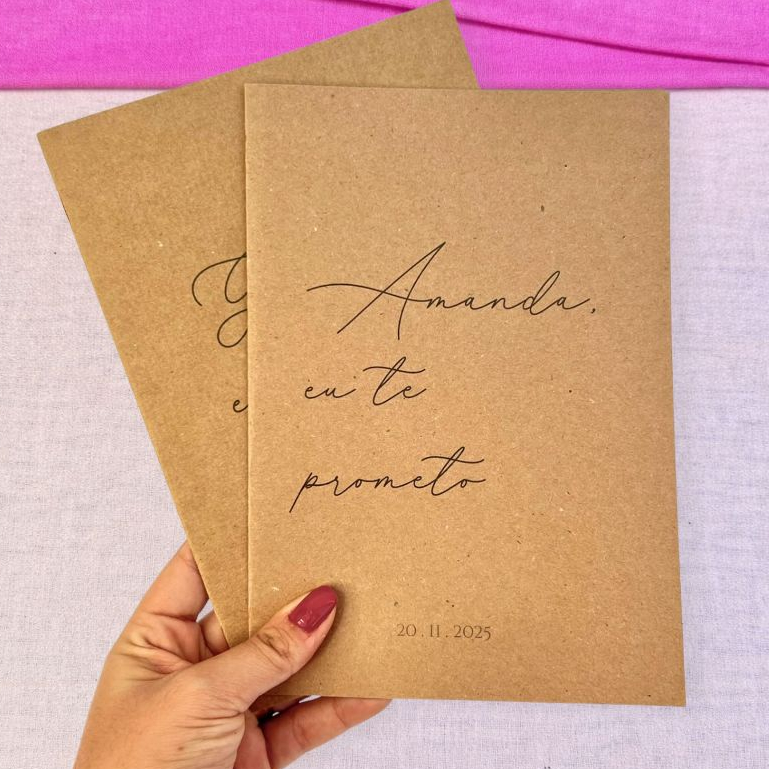 Amanda,
eu te
prometo
20.11.2025